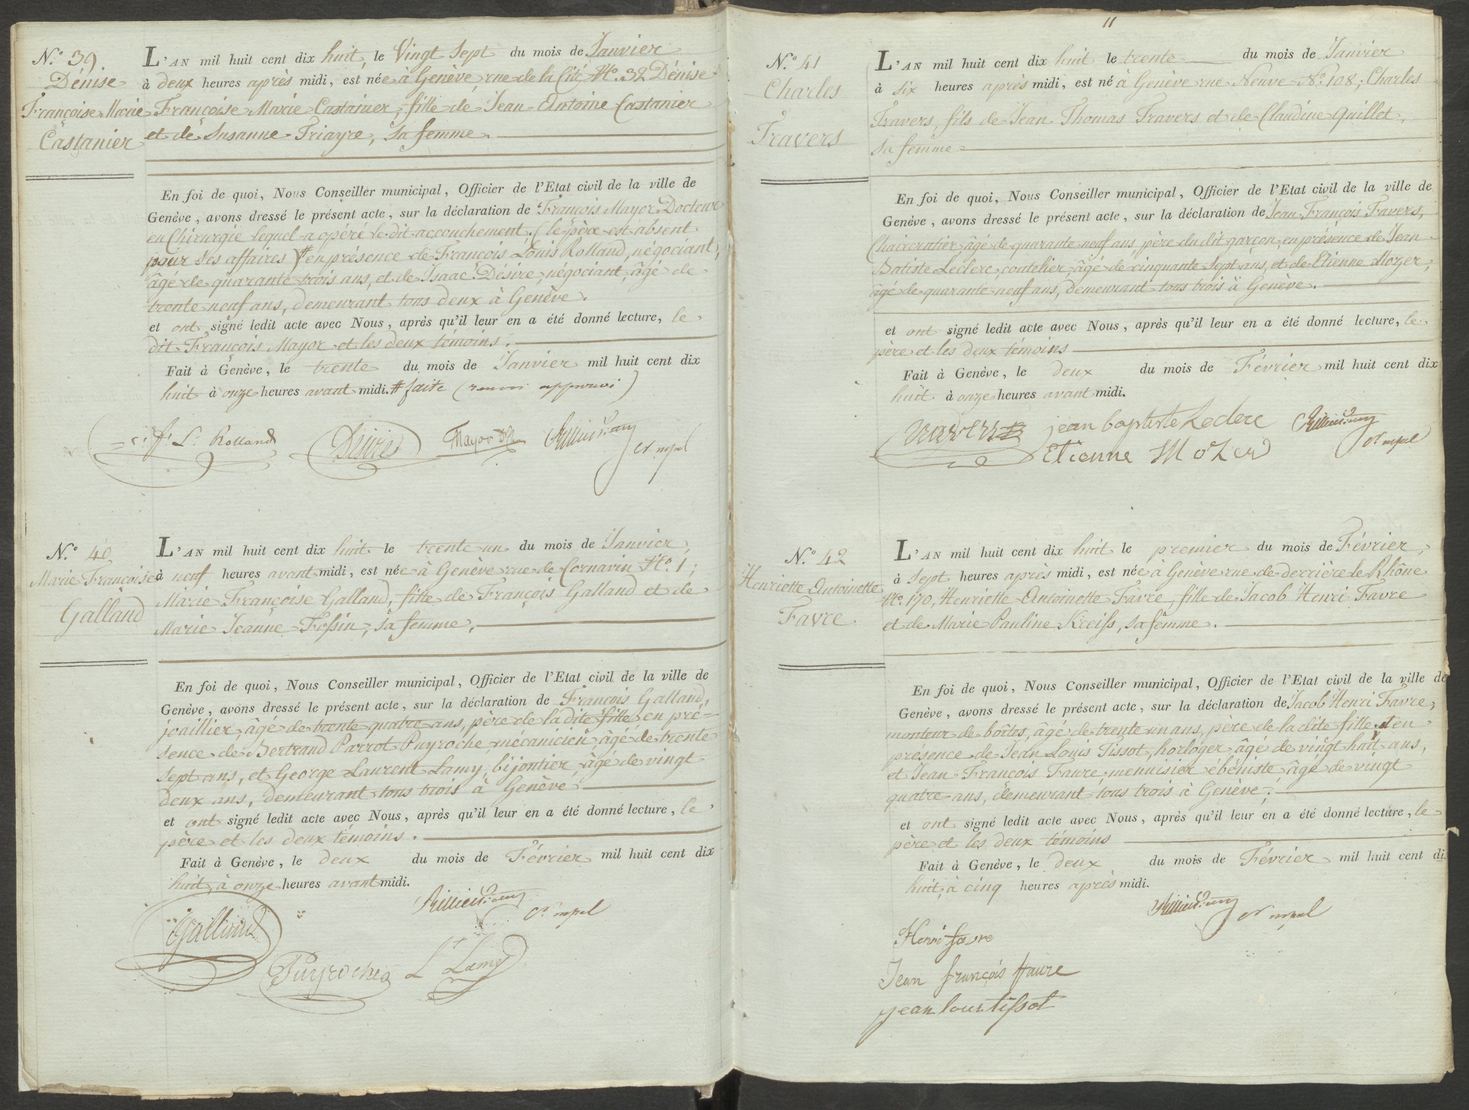 N.º 39.
Dénise
Françoise Marie
Castanier
L'AN mil huit cent dix huit, le Vingt Sept du mois de Janvier
à deux heures après midi, est née à Genève rue de la Cité N.º 32. Dénise
Françoise Marie Castanier, fille de Jean Antoine Castanier
et de Susanne Triayre, sa femme.
En foi de quoi, Nous Conseiller municipal, Officier de l'Etat civil de la ville de
Genève, avons dressé le présent acte, sur la déclaration de François Mayor Docteur
en Chirurgie lequel a opéré le dit accouchement, (le père est absent
pour ses affaires # en présence de François Louis Rolland, négociant,
âgé de quarante trois ans, et de Isaac Désire, négociant, âgé de
trente neuf ans, demeurant tous deux à Genève.
et ont signé ledit acte avec Nous, après qu'il leur en a été donné lecture, le
dit François Mayor et les deux témoins.
Fait à Genève, le trente du mois de Janvier mil huit cent dix
huit à onze heures avant midi. # faite (renvoi approuvé)
f. L. Rolland Mayor
N.º 40
Marie Françoise
Galland
L'AN mil huit cent dix huit le trente un du mois de Janvier,
à neuf heures avant midi, est née à Genève rue de Cornavin N.º 1;
Marie Françoise Galland, fille de François Galland et de
Marie Jeanne Fossin, sa femme.
En foi de quoi, Nous Conseiller municipal, Officier de l'Etat civil de la ville de
Genève, avons dressé le présent acte, sur la déclaration de François Galland,
joaillier, âgé de trente quatre ans, père de la dite fille en pré-
sence de Bertrand Parrot Puyroche, mécanicien, âgé de trente
sept ans, et George Laurent Lamy, bijoutier, âgé de vingt
deux ans, demeurant tous trois à Genève
et ont signé ledit acte avec Nous, après qu'il leur en a été donné lecture, le
père et les deux témoins.
Fait à Genève, le deux du mois de Février mil huit cent dix
huit, à onze heures avant midi.
Galland
Puyroche L Lamy
11
N.º 41
Charles
Travers
L'AN mil huit cent dix huit le trente du mois de Janvier
à six heures après midi, est né à Genève rue Neuve N.º 108, Charles
Travers, fils de Jean Thomas Travers et de Claudine Guillet,
sa femme
En foi de quoi, Nous Conseiller municipal, Officier de l'Etat civil de la ville de
Genève, avons dressé le présent acte, sur la déclaration de Jean François Travers,
âgé de quarante neuf ans père du dit garçon, en présence de Jean
Batiste Leclerc, coutelier, âgé de cinquante sept ans, et de Etienne Mozer,
âgé de quarante neuf ans, demeurant tous trois à Genève.
et ont signé ledit acte avec Nous, après qu'il leur en a été donné lecture, le
père et les deux témoins
Fait à Genève, le deux du mois de Février mil huit cent dix
huit à onze heures avant midi.
travers jean baptiste Leclerc
Etienne Mozer
N.º 42
Henriette Antoinette
Favre.
L'AN mil huit cent dix huit le premier du mois de Février,
à sept heures après midi, est née à Genève rue de derrière le Rhône
N.º 170, Henriette Antoinette Favre, fille de Jacob Henri Favre
et de Marie Pauline Kreiss, sa femme.
En foi de quoi, Nous Conseiller municipal, Officier de l'Etat civil de la ville de
Genève, avons dressé le présent acte, sur la déclaration de Jacob Henri Favre,
monteur de boîtes, âgé de trente un ans, père de la dite fille et en
présence de Jean Louis Tissot, horloger, âgé de vingt huit ans,
et Jean François Faure, menuisier ébéniste âgé de vingt
quatre ans, demeurant tous trois à Genève.
et ont signé ledit acte avec Nous, après qu'il leur en a été donné lecture, le
père et les deux témoins
Fait à Genève, le deux du mois de Février mil huit cent di
huit, à cinq heures après midi.
Henri favre
Jean françois faure
jean louis tissot